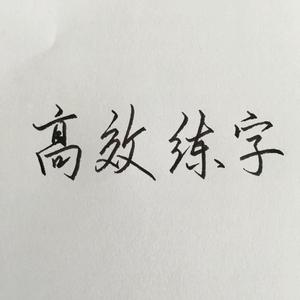 高效练字